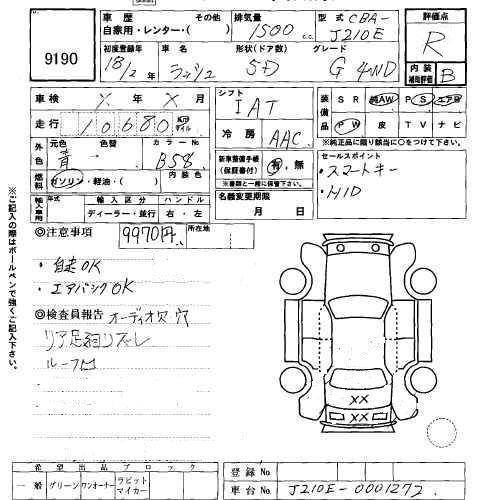 9190
車歴 その他 排気量 型式 CBA- 評価点
自家用・レンター・( ) 1500 c.c. J210E R
初度登録年 車名 形状(ドア数) グレード 内装
18/2年 ラッシュ 5D G 4WD 補助評価 B
車検 X年 X月 シフト 装備品 SR 純AW PS エアB
走行 10680 Km マイル IAT PW 皮 TV ナビ
外色 元色 色替 カラーNo 冷房 ※純正品に限り該当に○をつけて下さい。
青 B58 AAC セールスポイント
内装色 新車整備手帳 有・無 ・スマートキー
燃料 ガソリン・軽油・( ) (保証書付) ・HID
※書類と一緒に保管下さい。
輸入車用 年式 輸入区分 ハンドル 名義変更期限
ディーラー・並行 右・左 月 日
◎注意事項 9970円 所在地
・自走OK
・エアバックOK
◎検査員報告 オーディオ欠穴
リア足廻りズレ
ルーフ凹
XX
XX
※ご記入の際はボールペンで強くご記入下さい。
希望出品ブロック 登録No
一般 グリーン ワンオーナー ラビットマイカー 車台No J210E-0001272